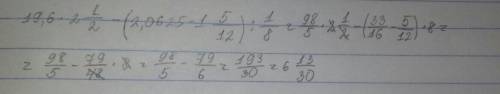 19,6 · 2 1/2 − (2,0625 − 1 5/12) : 1/8 = 98/5 · 2 1/2 − (33/16 − 5/12) · 8 =
= 98/5 − 79/48 · 8 = 98/5 − 79/6 = 193/30 = 6 13/30